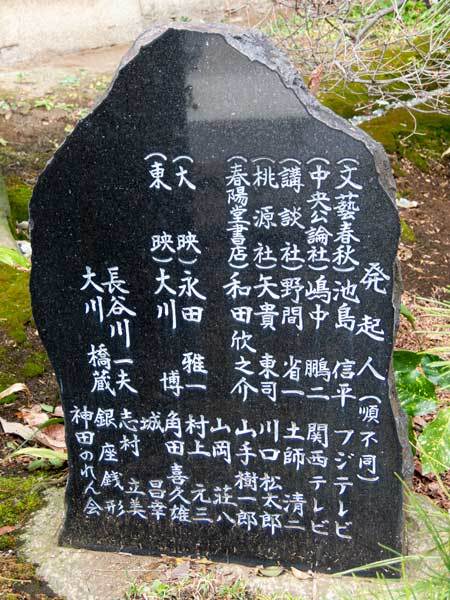 発起人(順不同)
(文藝春秋)池島 信平 フジテレビ
(中央公論社)嶋中 鵬二 関西テレビ
(講談社)野間 省一 土師 清二
(桃源社)矢貴 東司 川口 松太郎
(春陽堂書店)和田欣之介 山手 樹一郎
山岡 荘八
(大映)永田 雅一 村上 元三
(東映)大川 博 角田 喜久雄
城 昌幸
長谷川一夫 志村 立美
大川 橋蔵 銀座 銭形
神田のれん会